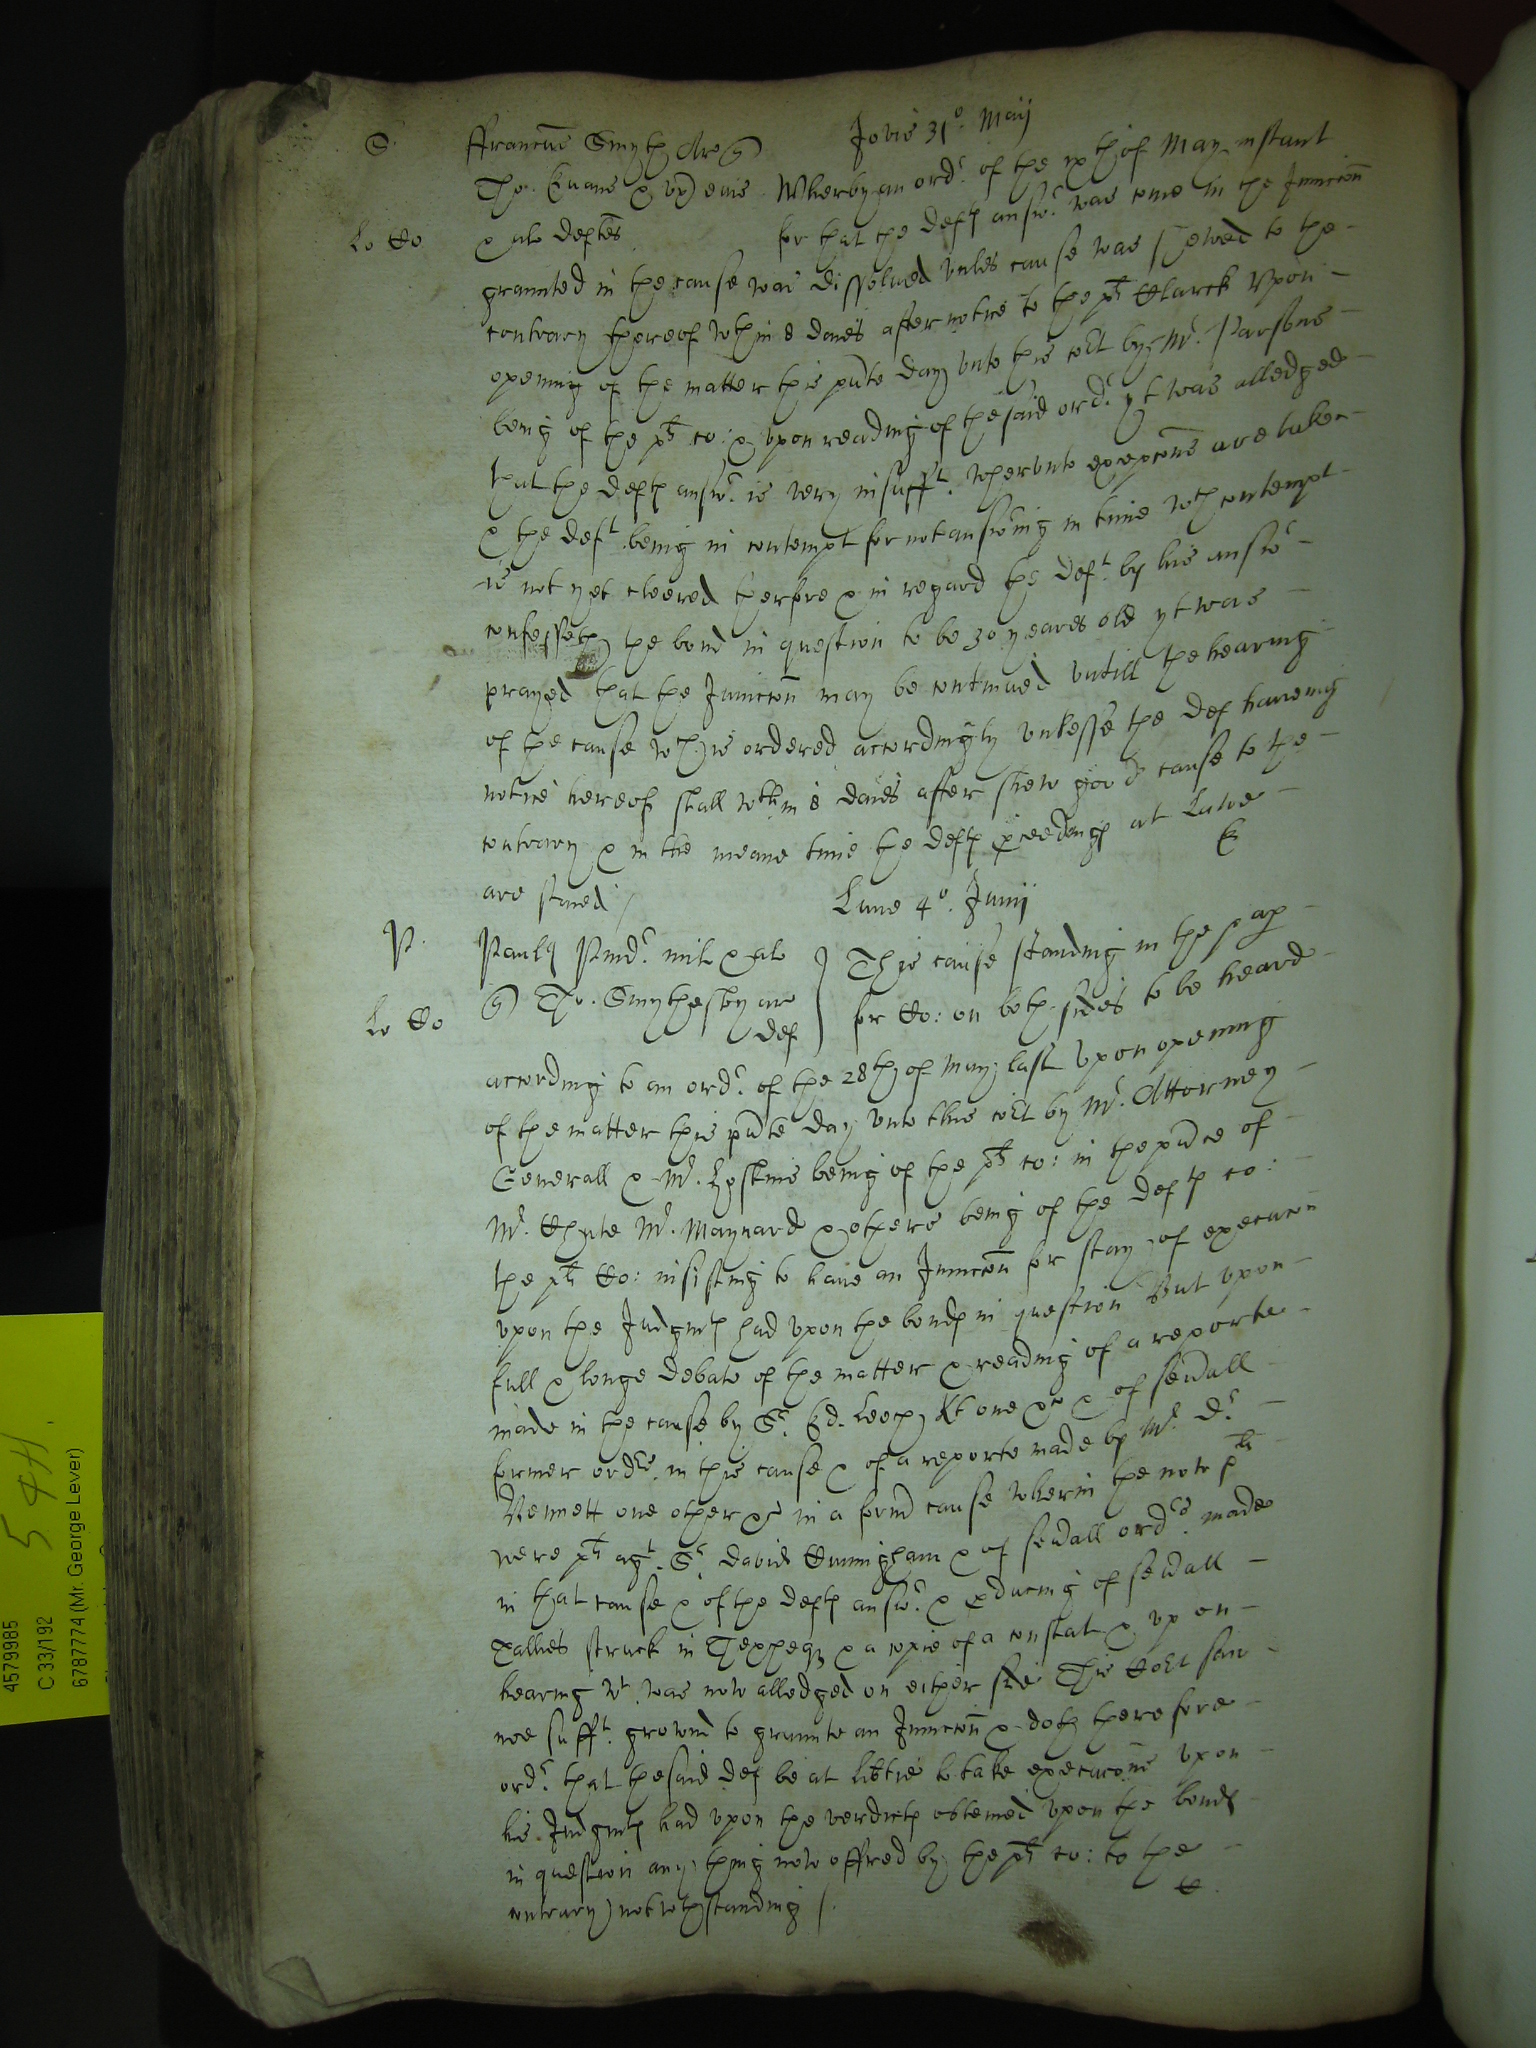 S. ffrancus Smyth Ar q Jovis 31o Maij
Tho. Evans & ux eius Wherby an ordr. of the ixth of May instant
Lo Co & als deftes for that the defts answr. was come in the Iniuncon
graunted in the cause was dissolued vnles cause was shewed to the
contrary thereof wthin 8 daies after notice to the plts Clarck Vpon
opening of the matter this pnte day vnto this cort by Mr. Parsons
being of the plts co: & vpon reading of the said ordr. yt was alledged
that the defts answr. is very insufft. wherunto excepcons are taken
& the deft. being in contempt for not answring in time wch contempt
is not yet cleered therfore & in regard the deft. by his answr
confesseth the bond in question to be 30 yeares old yt was
prayed that the Iniuncon may be continued vntill the hearing
of the cause wch is ordered accordingly vnlesse the def haueing
notice hereof shall wthin 8 daies after shew good cause to the
contrary & in the meane time the defts pceedings at Lawe
are staied / E
Lune 4o. Junij
P. Paulus Pindr. mil & al This cause standing in the pap
Lo Co q Tho. Smythesby ar for Co: on both sides to be heard
def
according to an ordr. of the 28th of May last vpon opening
of the matter this pnte day vnto this cort by Mr. Attorney
Generall & Mr. being of the plts co: in the pnce of
Mr. Chute Mr. Maynard & others being of the defts co:
the plts Co: insisting to haue an Iniuncon for stay of execucon
vpon the Judgmts had vpon the bonds in question But vpon
full & longe debate of the matter & reading of a reporte
made in the cause by Sr. Ed. Leech Kt one &c & of seuall
former ordrs. in this cause & of a reporte made by Mr. Dr.
Bennett one other &c in a formr cause wherin the now plts
were plts agt. Sr. David Cuningham & of seuall ordrs. made
in that cause & of the defts answr. & pducing of seuall
tallies struck in & a copie of a constat & vpon
hearing wt. was now alledged on either side This Cort saw
noe sufft. grownd to graunte an Iniuncon & doth therefore
ordr. that the said def be at libtie to take execucons vpon
his Judgmts had vpon the verdicts obteined vpon the bonds
in question any thing now offred by the plts co: to the
contrary notwthstanding / C.
54H
4579985
C 33/192
6787774 (Mr. George Lever)